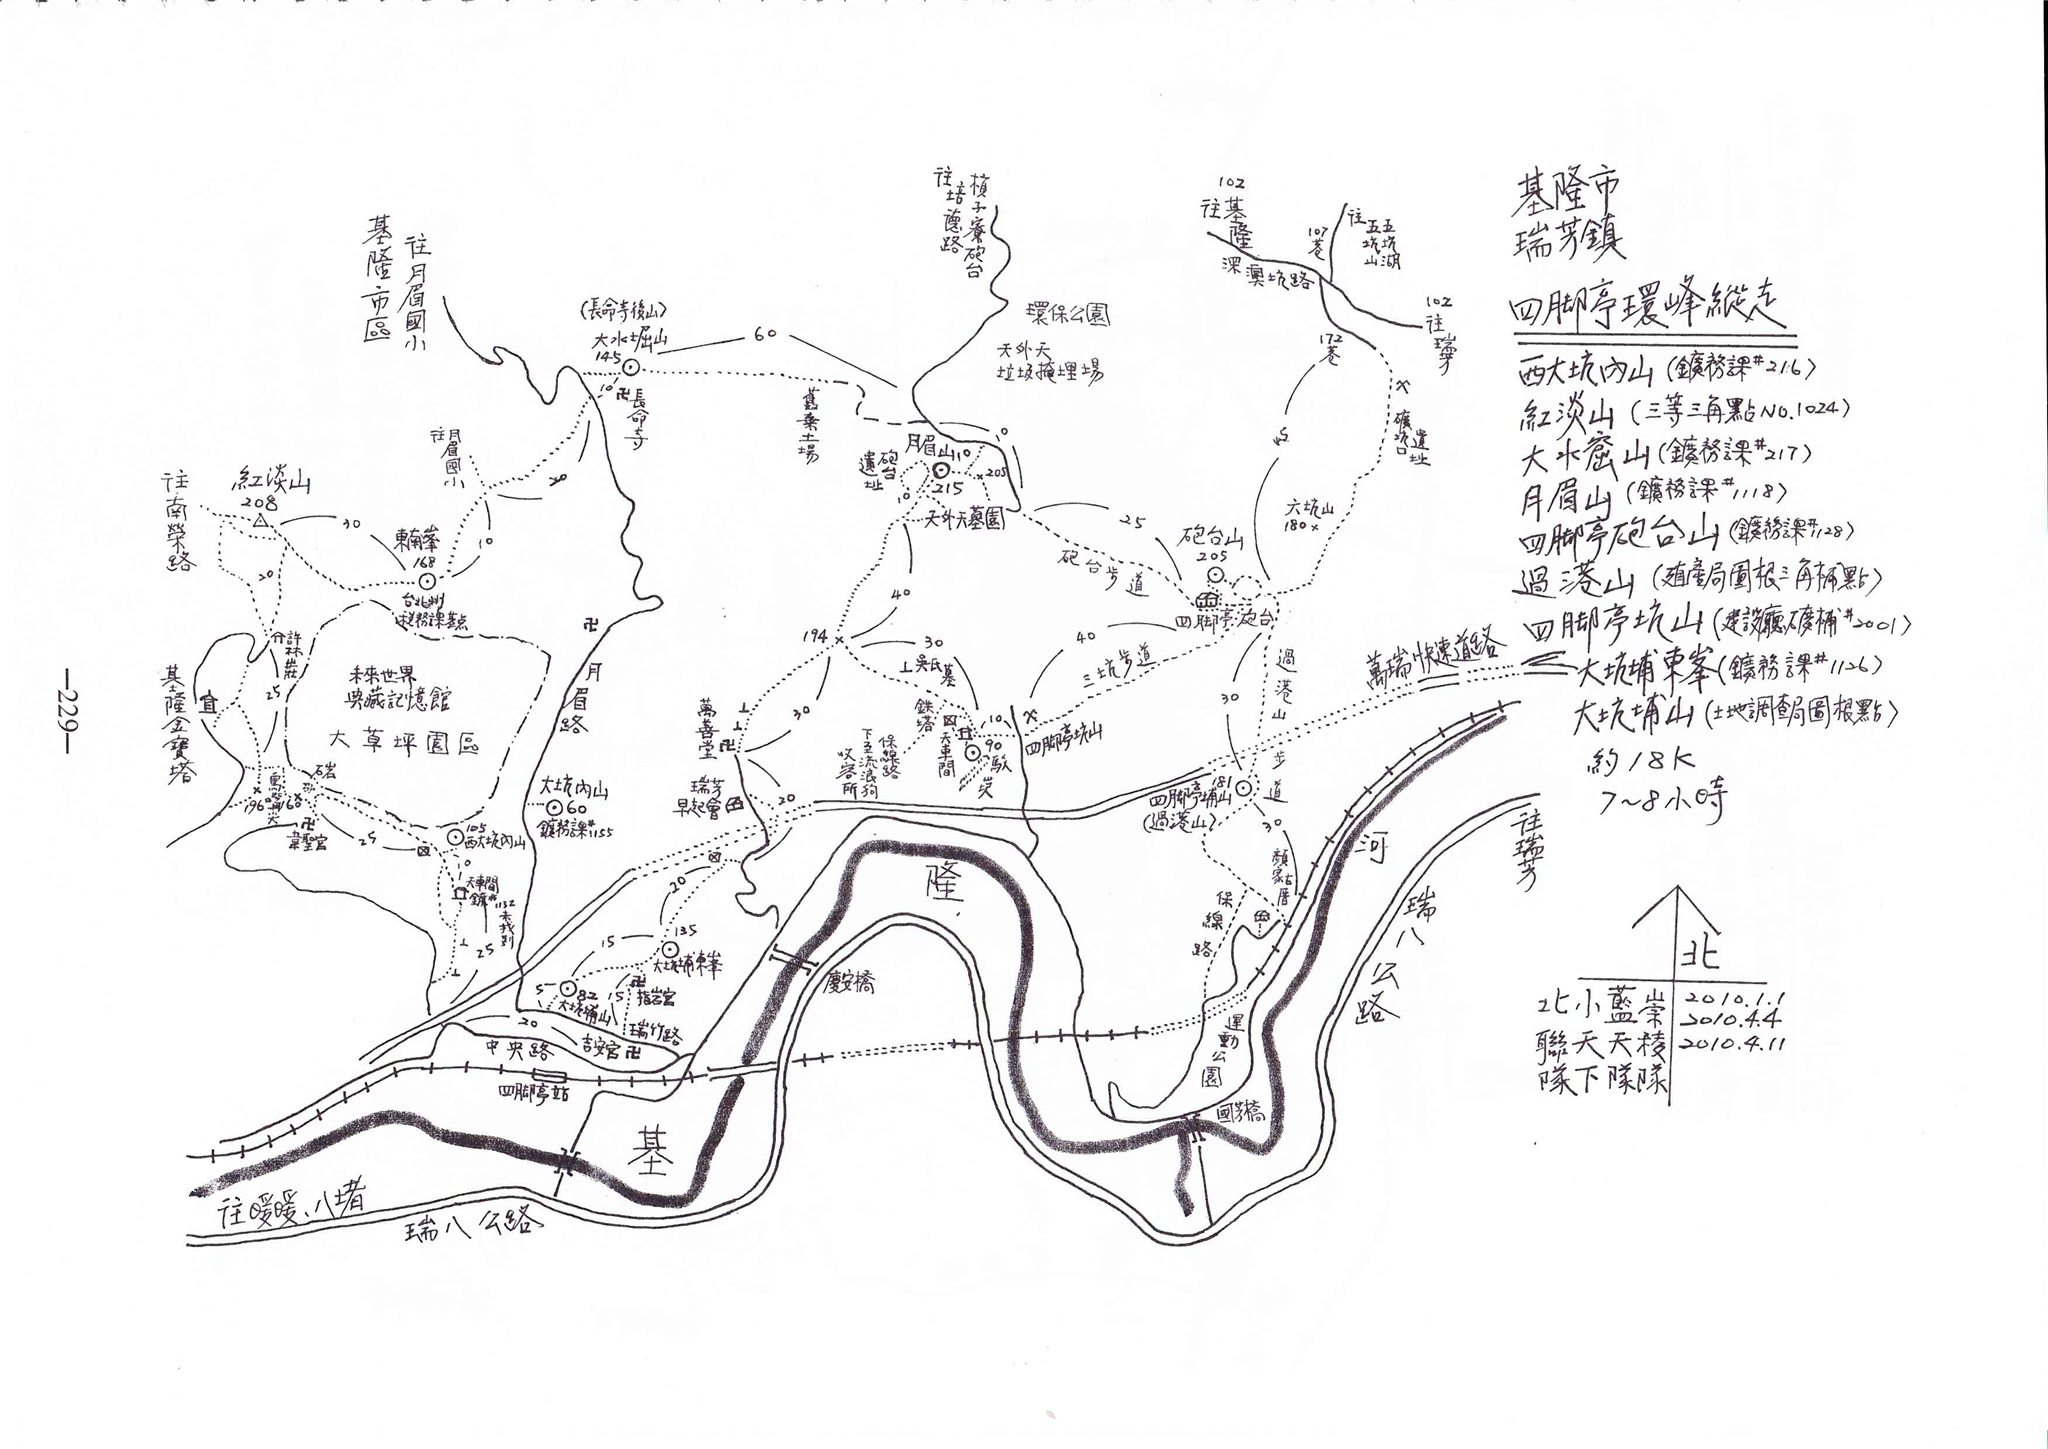 基隆市
瑞芳鎮
四脚亭環峰縱走
西大坑內山(鑛務課#216)
紅淡山(三等三角點NO.1024)
大水窟山(鑛務課#217)
月眉山(鑛務課#1118)
四脚亭砲台山(鑛務課#1128)
過港山(殖產局圖根三角補點)
四脚亭坑山(建設廳礦補#2001)
大坑埔東峯(鑛務課#1126)
大坑埔山(土地調查局圖根點)
約18K
7~8小時
北
北小藍崇
聯天天稜
隊下隊隊
2010.1.1
2010.4.4
2010.4.11
往月眉國小
基隆市區
(長命寺後山)
大水堀山
145
10
卍長命寺
60
舊棄土場
往培德路
槓子寮砲台
環保公園
天外天
垃圾掩埋場
102
往基隆
深澳坑路
107巷
往五坑山
五坑湖
102
往瑞芳
172巷
礦坑口遺址
45
六坑山
180
往南榮路
紅淡山
208
30
東南峯
168
往月眉國小
20
10
20
許林莊
25
基隆金寶塔
未來世界
典藏記憶館
大草坪園區
卍
月眉路
砲台遺址
月眉山
10
215
205
10
10
天外天墓園
25
砲台步道
砲台山
205
四脚亭砲台
40
三坑步道
194
40
30
吳氏墓
30
萬善堂
卍
鉄塔
天車間
10
90
四脚亭坑山
保線路
下至流浪狗
收容所
瑞芳
早起會
20
過港山步道
30
181
四脚亭埔山
(過港山)
30
顏家古厝
保線路
萬瑞快速道路
196
168
卍
韋聖宮
25
105
西大坑內山
天車間
鑛#1132未找到
25
大坑內山
60
鑛務課#1155
20
135
大坑埔東峯
15
5
82
大坑埔山
15
卍
指岩宮
瑞竹路
20
中央路
吉安宮卍
四脚亭站
慶安橋
基
隆
河
運動公園
國芳橋
往瑞芳
瑞八公路
往暖暖、八堵
瑞八公路
—229—